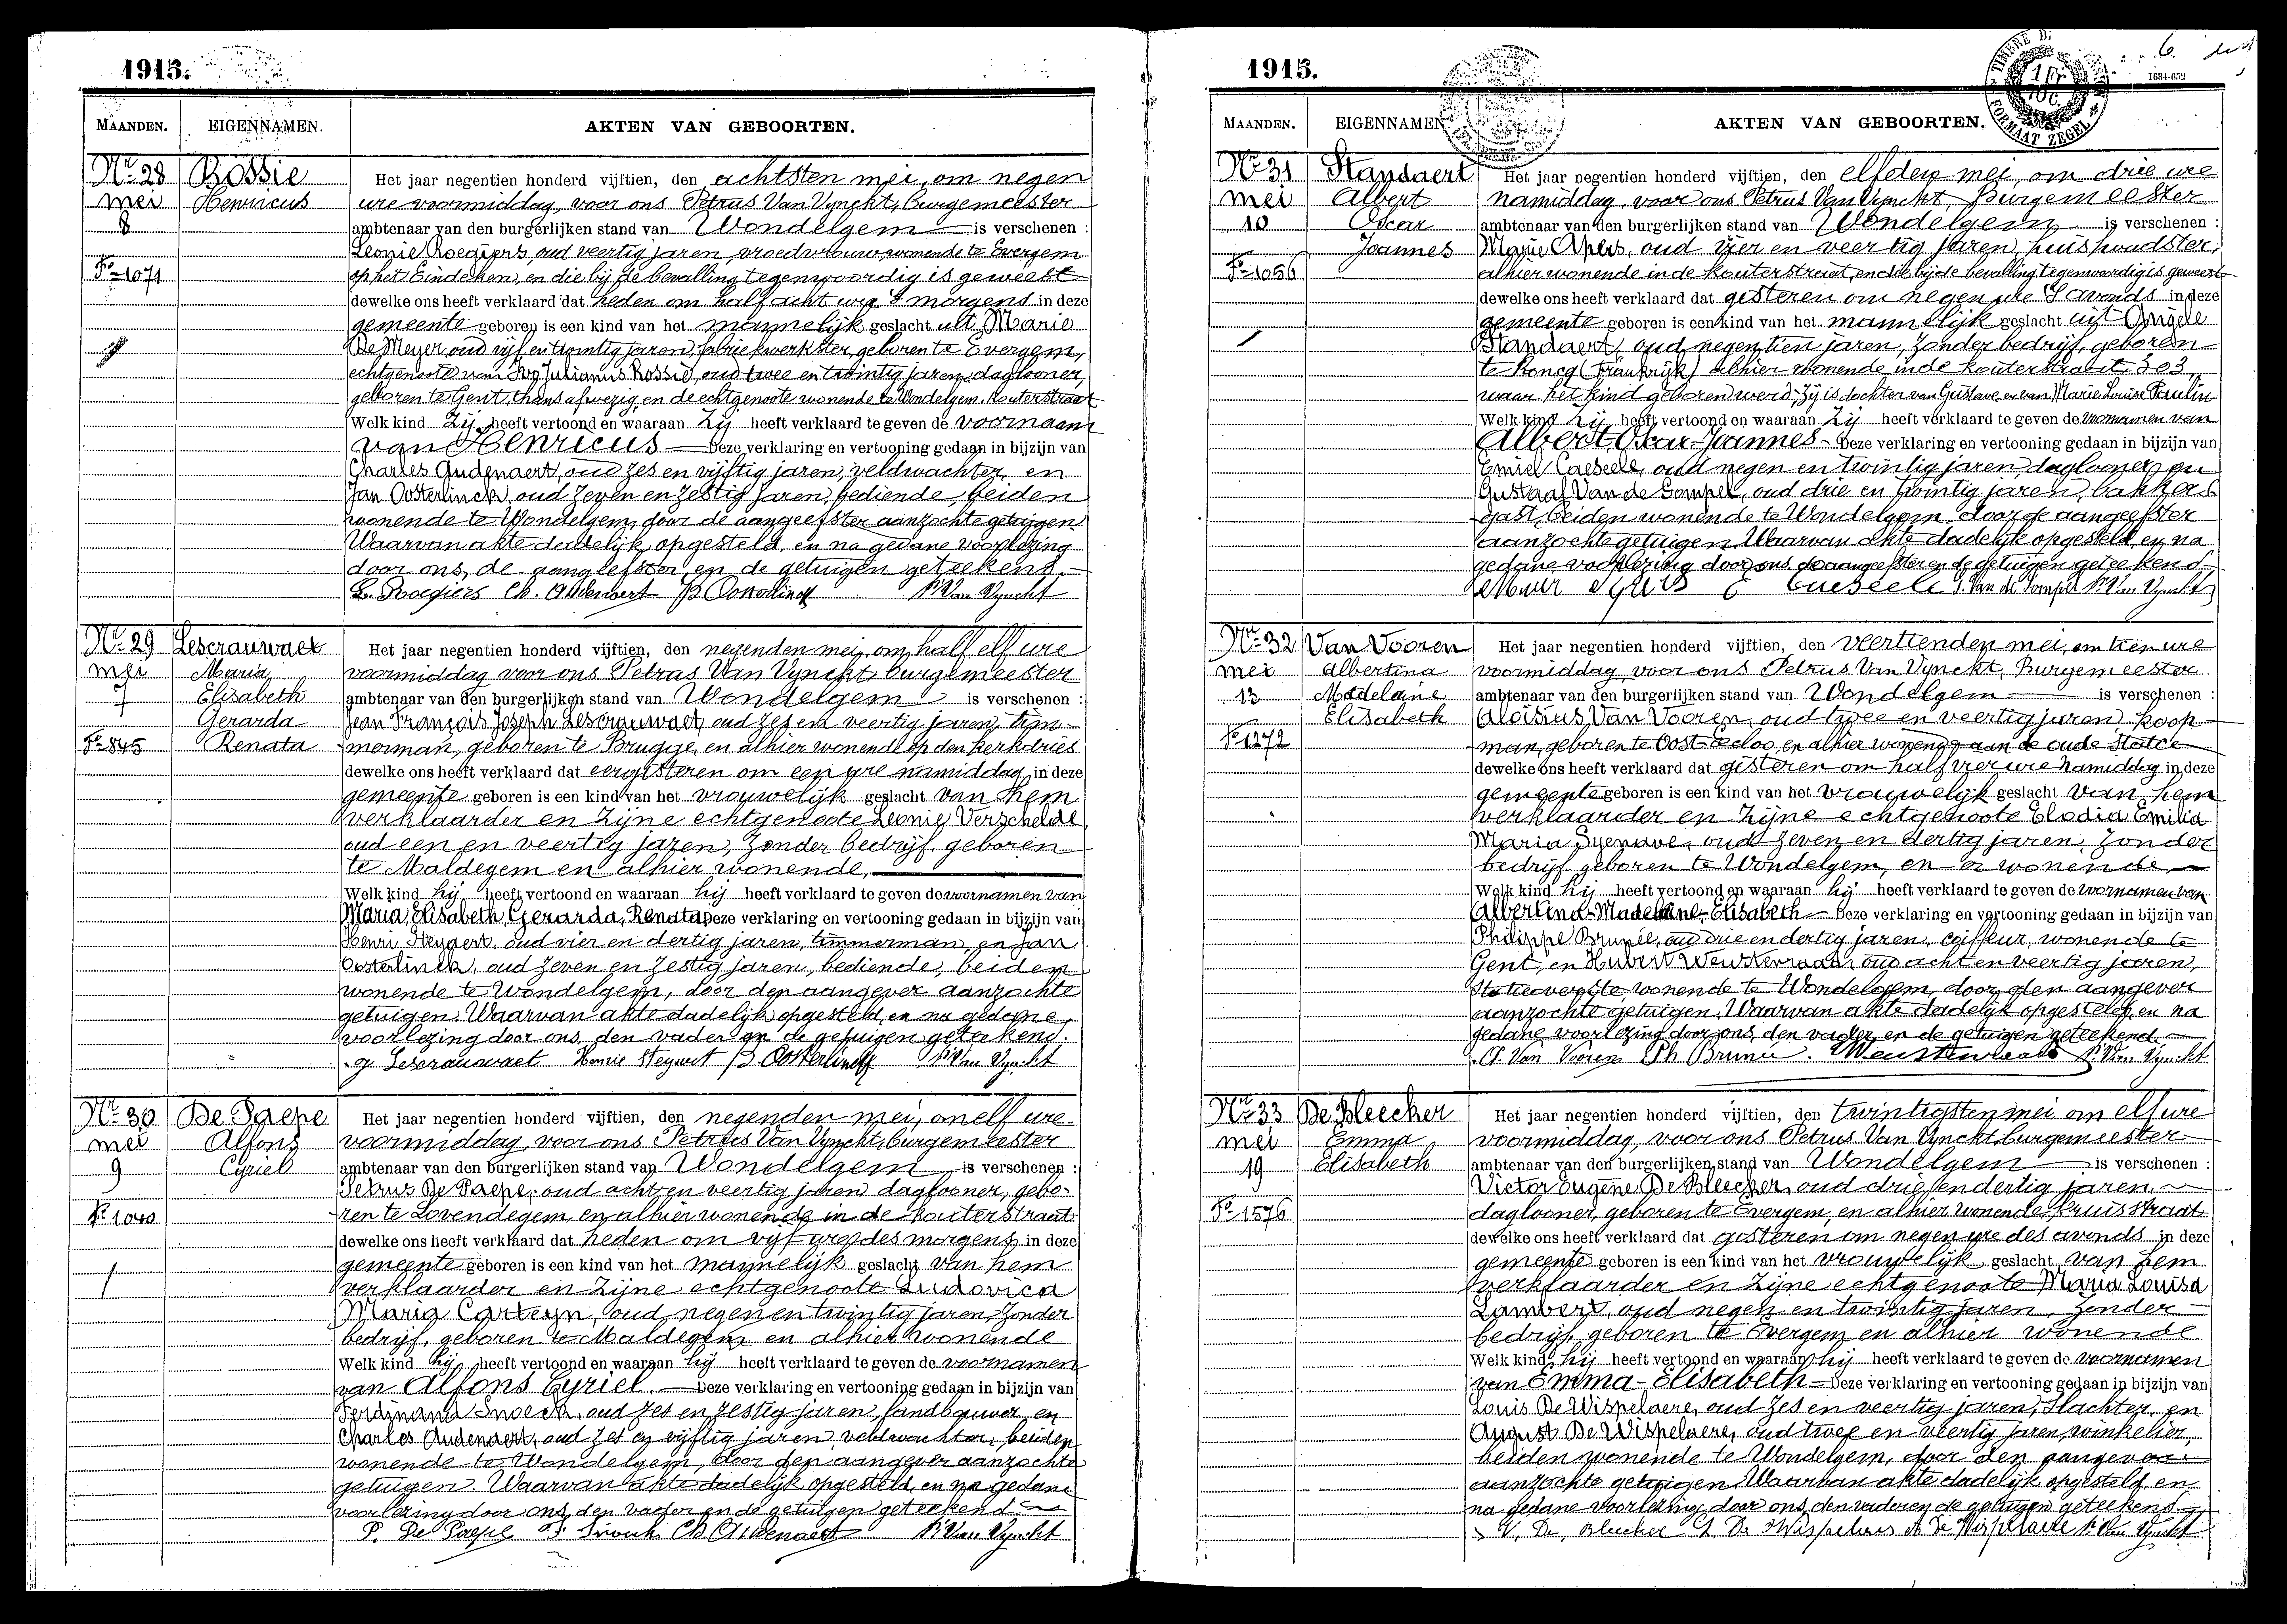 1915.
MAANDEN. EIGENNAMEN. AKTEN VAN GEBOORTEN.
Nr 28 Rossie Het jaar negentien honderd vijftien, den achtsten mei, om negen
mei Henricus ure voormiddag, voor ons Petrus Van Vynckt, burgemeester
8 ambtenaar van den burgerlijken stand van Wondelgem is verschenen :
Leonie Roegiers, oud veertig jaren, vroedvrouw, wonende te Evergem
Fo 1071 op het Eindeken, en die bij de bevalling tegenwoordig is geweest
dewelke ons heeft verklaard dat heden om half acht ure 's morgens in deze
gemeente geboren is een kind van het mannelijk geslacht uit Marie
De Meyer, oud vijf en twintig jaren, fabriekwerkster, geboren te Evergem,
echtgenoote van Ivo Julianus Rossie, oud twee en twintig jaren, daglooner,
geboren te Gent, thans afwezig, en de echtgenoote wonende te Wondelgem, Kouterstraat
Welk kind zij heeft vertoond en waaraan zij heeft verklaard te geven de voornaam
van Henricus Deze verklaring en vertooning gedaan in bijzijn van
Charles Audenaert, oud zes en vijftig jaren, veldwachter, en
Jan Oosterlinck, oud zeven en zestig jaren, bediende, beiden
wonende te Wondelgem, door de aangeefster aanzochte getuigen.
Waarvan akte dadelijk opgesteld, en na gedane voorlezing
door ons, de aangeefster en de getuigen geteekend.
L. Roegiers Ch. Audenaert J.B. Oosterlinck P. Van Vynckt
Nr 29 Lescrauwaet Het jaar negentien honderd vijftien, den negenden mei, om half elf ure
mei Maria voormiddag voor ons Petrus Van Vynckt, burgemeester
7 Elisabeth ambtenaar van den burgerlijken stand van Wondelgem is verschenen :
Gerarda Jean François Joseph Lescrauwaet, oud zes en veertig jaren, tim-
Fo 845 Renata merman, geboren te Brugge, en alhier wonende op den kerkdries
dewelke ons heeft verklaard dat eergisteren om een ure namiddag in deze
gemeente geboren is een kind van het vrouwelijk geslacht van hem
verklaarder en zijne echtgenoote Leonie Verschelde
oud een en veertig jaren, zonder bedrijf, geboren
te Maldegem en alhier wonende,
Welk kind hij heeft vertoond en waaraan hij heeft verklaard te geven de voornamen van
Maria, Elisabeth, Gerarda, Renata Deze verklaring en vertooning gedaan in bijzijn van
Henri Steyaert, oud vier en dertig jaren, timmerman, en Jan
Oosterlinck, oud zeven en zestig jaren, bediende, beiden
wonende te Wondelgem, door den aangever aanzochte
getuigen. Waarvan akte dadelijk opgesteld, en na gedane
voorlezing door ons, den vader en de getuigen geteekend.
J. Lescrauwaet Henri Steyaert J.B. Oosterlinck P. Van Vynckt
Nr 30 De Paepe Het jaar negentien honderd vijftien, den negenden mei, om elf ure
mei Alfons voormiddag, voor ons Petrus Van Vynckt, burgemeester
9 Cyriel ambtenaar van den burgerlijken stand van Wondelgem is verschenen :
Petrus De Paepe, oud acht en veertig jaren, daglooner, gebo-
Fo 1040 ren te Lovendegem, en alhier wonende in de Kouterstraat
dewelke ons heeft verklaard dat heden om vijf ure des morgens in deze
gemeente geboren is een kind van het mannelijk geslacht van hem
verklaarder en zijne echtgenoote Ludovica
Maria Carteyn, oud negen en twintig jaren, zonder
bedrijf, geboren te Maldegem en alhier wonende
Welk kind hij heeft vertoond en waaraan hij heeft verklaard te geven de voornamen
van Alfons Cyriel. Deze verklaring en vertooning gedaan in bijzijn van
Ferdinand Snoeck, oud zes en zestig jaren, landbouwer, en
Charles Audenaert, oud zes en vijftig jaren, veldwachter, beiden
wonende te Wondelgem, door den aangever aanzochte
getuigen. Waarvan akte dadelijk opgesteld, en na gedane
voorlezing door ons, den vader en de getuigen geteekend.
P. De Paepe F. Snoeck Ch. Audenaert P. Van Vynckt
1915.
TIMBRE DI 1 Fr 10c. FORMAAT ZEGEL
6
1634-652
MAANDEN. EIGENNAMEN AKTEN VAN GEBOORTEN.
Nr 31 Standaert Het jaar negentien honderd vijftien, den elfden mei, om drie ure
mei Albert namiddag, voor ons Petrus Van Vynckt, Burgemeester
10 Oscar ambtenaar van den burgerlijken stand van Wondelgem is verschenen :
Joannes Marie Apers, oud vier en veertig jaren, huishoudster,
Fo 1056 alhier wonende in de Kouterstraat, en die bij de bevalling tegenwoordig is geweest
dewelke ons heeft verklaard dat gisteren om negen ure 's avonds in deze
gemeente geboren is een kind van het mannelijk geslacht uit Angele
Standaert, oud negentien jaren, zonder bedrijf, geboren
te Roncq (Frankrijk) alhier wonende in de Kouterstraat 303
waar het kind geboren werd; Zij is dochter van Gustave en van Marie Louise Paulin
Welk kind zij heeft vertoond en waaraan zij heeft verklaard te geven de voornamen van
Albert, Oscar, Joannes Deze verklaring en vertooning gedaan in bijzijn van
Emiel Caeseele, oud negen en twintig jaren, daglooner, en
Gustaaf Van de Sompel, oud drie en twintig jaren, bakkers
gast, beiden wonende te Wondelgem, door de aangeefster
aanzochte getuigen. Waarvan akte dadelijk opgesteld, en na
gedane voorlezing door ons, de aangeefster en de getuigen geteekend.
E Caeseele G. Van de Sompel P. Van Vynckt
Nr 32 Van Vooren Het jaar negentien honderd vijftien, den veertienden mei, om tien ure
mei Albertina voormiddag voor ons Petrus Van Vynckt, Burgemeester
13 Madelaine ambtenaar van den burgerlijken stand van Wondelgem is verschenen :
Elisabeth Aloisius Van Vooren, oud twee en veertig jaren, koop-
Fo 1272 man, geboren te Oost-Eecloo, en alhier wonende aan de oude Statie
dewelke ons heeft verklaard dat gisteren om half vier ure namiddag in deze
gemeente geboren is een kind van het vrouwelijk geslacht van hem
verklaarder en zijne echtgenoote Elodia Emilia
Maria Syenave, oud zeven en dertig jaren, zonder
bedrijf, geboren te Wondelgem, en er wonende
Welk kind hij heeft vertoond en waaraan hij heeft verklaard te geven de voornamen van
Albertina-Madelaine-Elisabeth Deze verklaring en vertooning gedaan in bijzijn van
Philippe Brunée, oud drie en dertig jaren, coiffeur, wonende te
Gent, en Hubert Weustenraad, oud acht en veertig jaren,
Statieoverste wonende te Wondelgem, door den aangever
aanzochte getuigen. Waarvan akte dadelijk opgesteld, en na
gedane voorlezing door ons, den vader en de getuigen geteekend.
A. Van Vooren Ph Brunée. Weustenraad P. Van Vynckt
Nr 33 De Bleecker Het jaar negentien honderd vijftien, den twintigsten mei om elf ure
mei Emma voormiddag, voor ons Petrus Van Vynckt burgemeester
19 Elisabeth ambtenaar van den burgerlijken stand van Wondelgem is verschenen :
Victor Eugène De Bleecker, oud drie en dertig jaren,
Fo 1576 daglooner, geboren te Evergem, en alhier wonende Kruisstraat
dewelke ons heeft verklaard dat gisteren om negen ure des avonds in deze
gemeente geboren is een kind van het vrouwelijk geslacht van hem
verklaarder en zijne echtgenoote Maria Louisa
Lambert, oud negen en twintig jaren, zonder
bedrijf, geboren te Evergem en alhier wonende
Welk kind hij heeft vertoond en waaraan hij heeft verklaard te geven de voornamen
van Emma-Elisabeth Deze verklaring en vertooning gedaan in bijzijn van
Louis De Wispelaere, oud zes en veertig jaren, slachter, en
August De Wispelaere, oud twee en veertig jaren, winkelier
beiden wonende te Wondelgem, door den aangever
aanzochte getuigen. Waarvan akte dadelijk opgesteld en
na gedane voorlezing door ons, den vader en de getuigen geteekend.
V. De Bleecker L De Wispelaere A De Wispelaere P. Van Vynckt